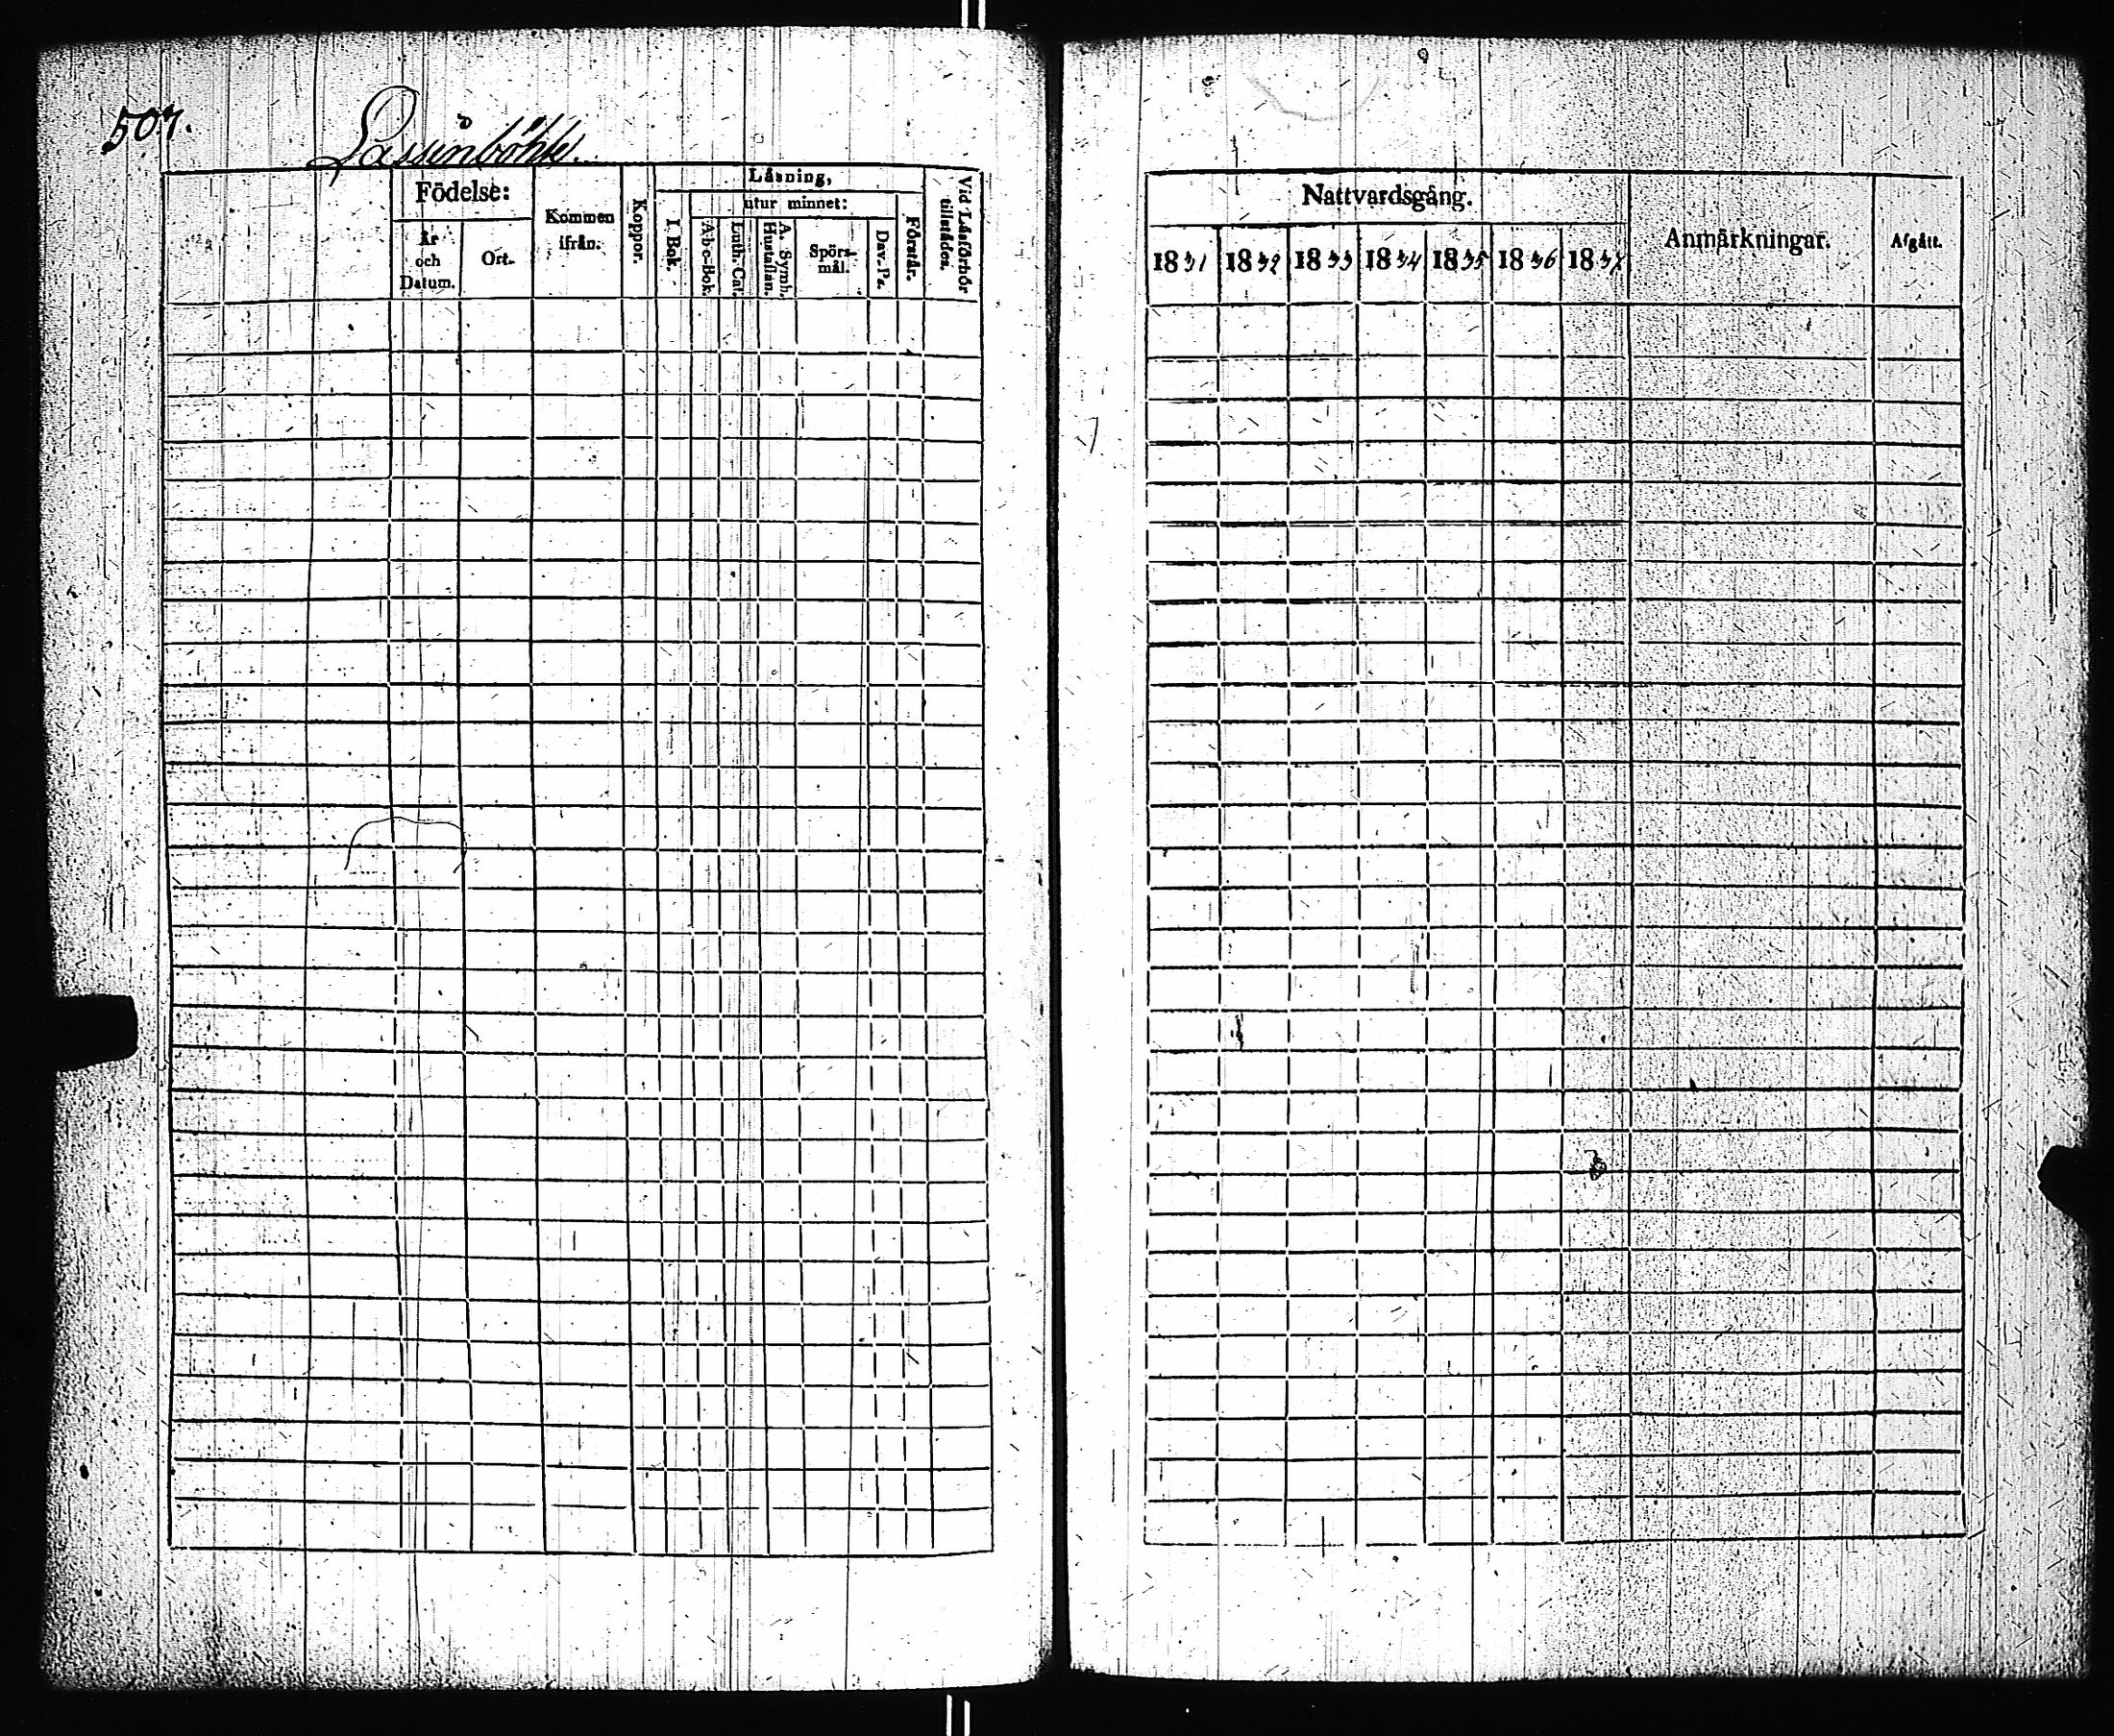 507.
Födelse:
År och Datum.
Ort.
Kommen ifrån.
Koppor.
Läsning,
I Bok.
utur minnet:
A-b-c-Bok.
Luth. Cat.
A. Symb. Hustaflan.
Spörs-mål.
Dav. Ps.
Förstår.
Vid Läsförhör tillstädes.
Nattvardsgång.
1831 1832 1833 1834 1835 1836
Anmärkningar.
Afgått.